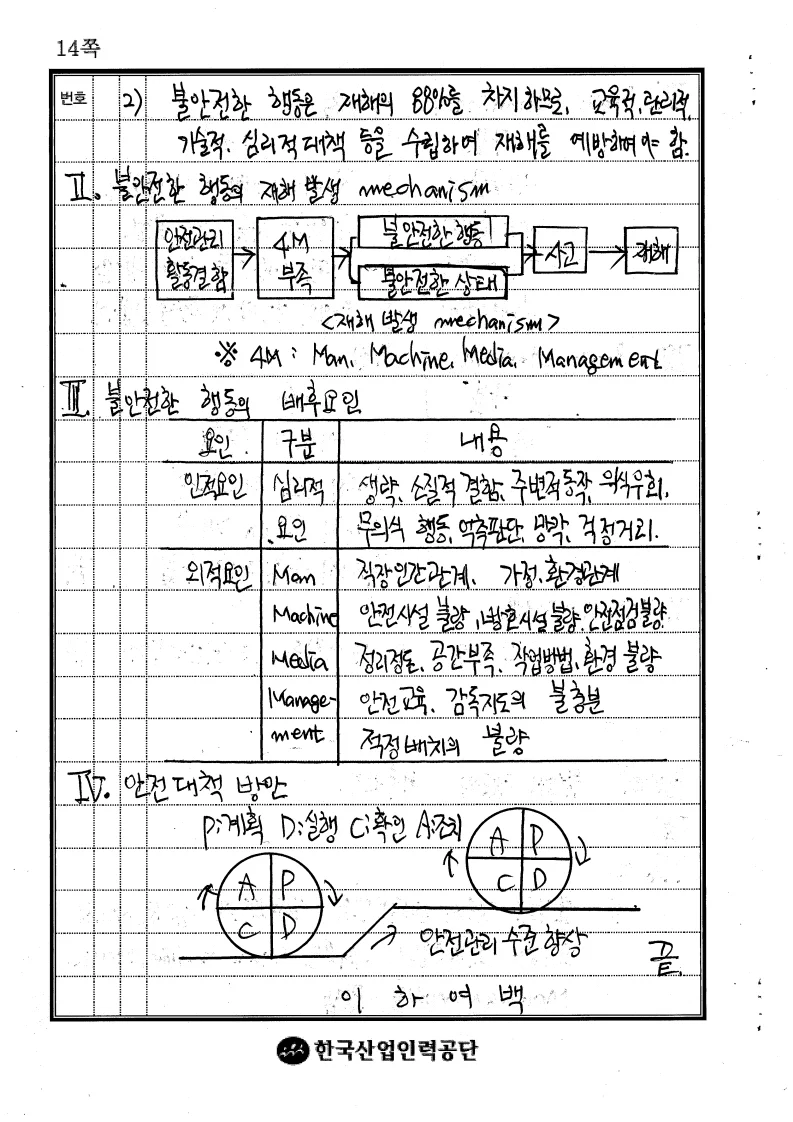 14쪽
번호 2) 불안전한 행동은 재해의 88%를 차지하므로, 교육적, 관리적,
기술적, 심리적 대책 등을 수립하여 재해를 예방하여야 함.
Ⅱ. 불안전한 행동의 재해 발생 mechanism
안전관리 활동결함
4M 부족
불안전한 행동
불안전한 상태
사고
재해
<재해 발생 mechanism>
※ 4M : Man, Machine, Media, Management
Ⅲ. 불안전한 행동의 배후요인
요인 구분 내용
인적요인 심리적 생략, 소질적 결함, 주변적동작, 의식우회,
요인 무의식 행동, 억측판단, 망각, 걱정거리.
외적요인 Man 직장인간관계, 가정, 환경관계
Machine 안전시설 불량, 방호시설 불량, 안전점검불량
Media 정리정돈, 공간부족, 작업방법, 환경 불량
Manage- 안전교육, 감독지도의 불충분
ment 적정배치의 불량
Ⅳ. 안전대책 방안
P:계획 D:실행 C:확인 A:조치
A P
C D
A P
C D
안전관리 수준 향상
끝.
이 하 여 백
한국산업인력공단